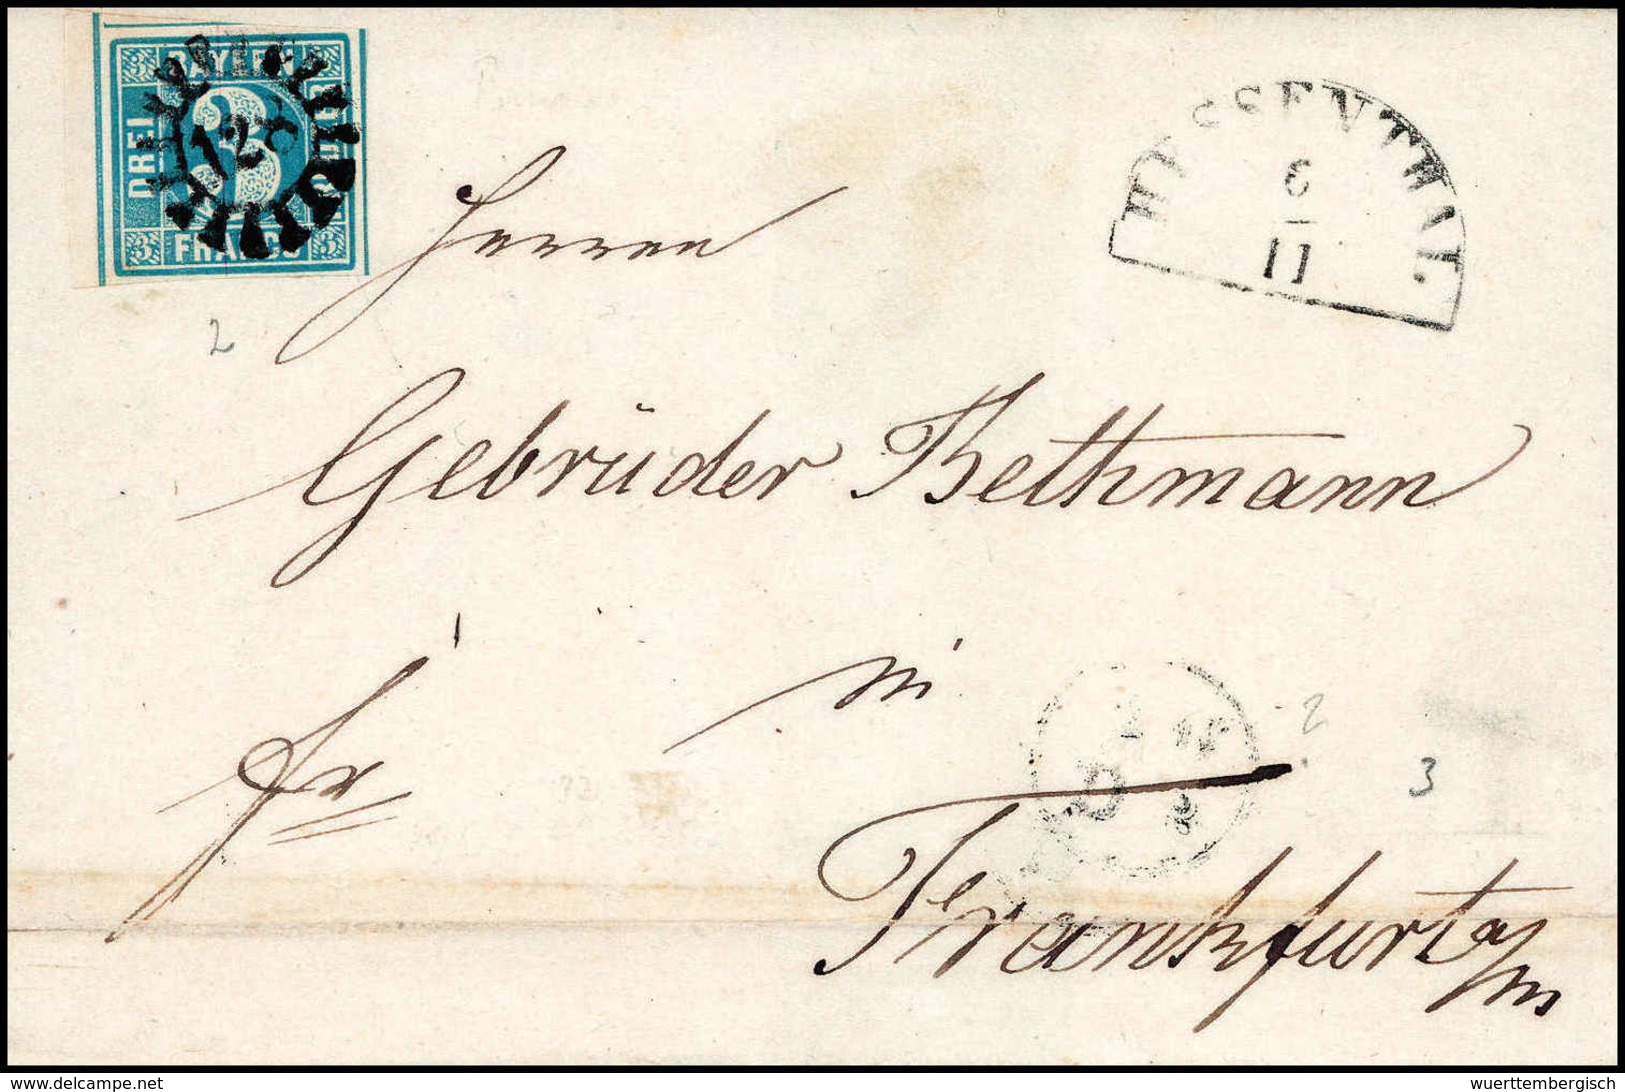 BAYERN
DREI
3
128
FRANCO
HESSENTHAL.
6
11
Herren
Gebrüder Bethmann
in
fr
Frankfurt a/m
2
2
3
www.delcampe.net
wuerttembergisch